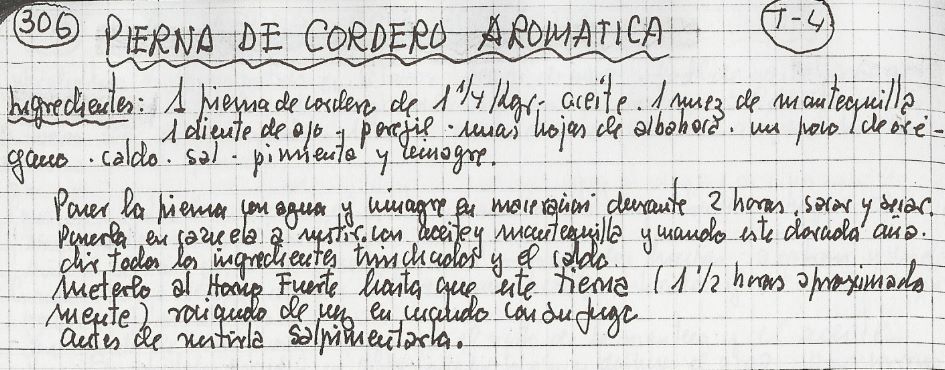 306 PIERNA DE CORDERO AROMATICA T-4
Ingredientes: 1 pierna de cordero de 1 1/4 kgr. aceite. 1 nuez de mantequilla
1 diente de ajo y perejil. unas hojas de albahaca. un poco de oré-
gano. caldo. sal. pimienta y vinagre.
Poner la pierna con agua y vinagre en maceración durante 2 horas. sacar y secar.
Ponerla en cazuela a rustir. con aceite y mantequilla y cuando este dorada aña-
dir todos los ingredientes trinchados y el caldo.
Meterlo al Horno Fuerte hasta que este Tierna (1 1/2 horas aproximada
mente) rociando de vez en cuando con su jugo
antes de rustirla salpimentarla.